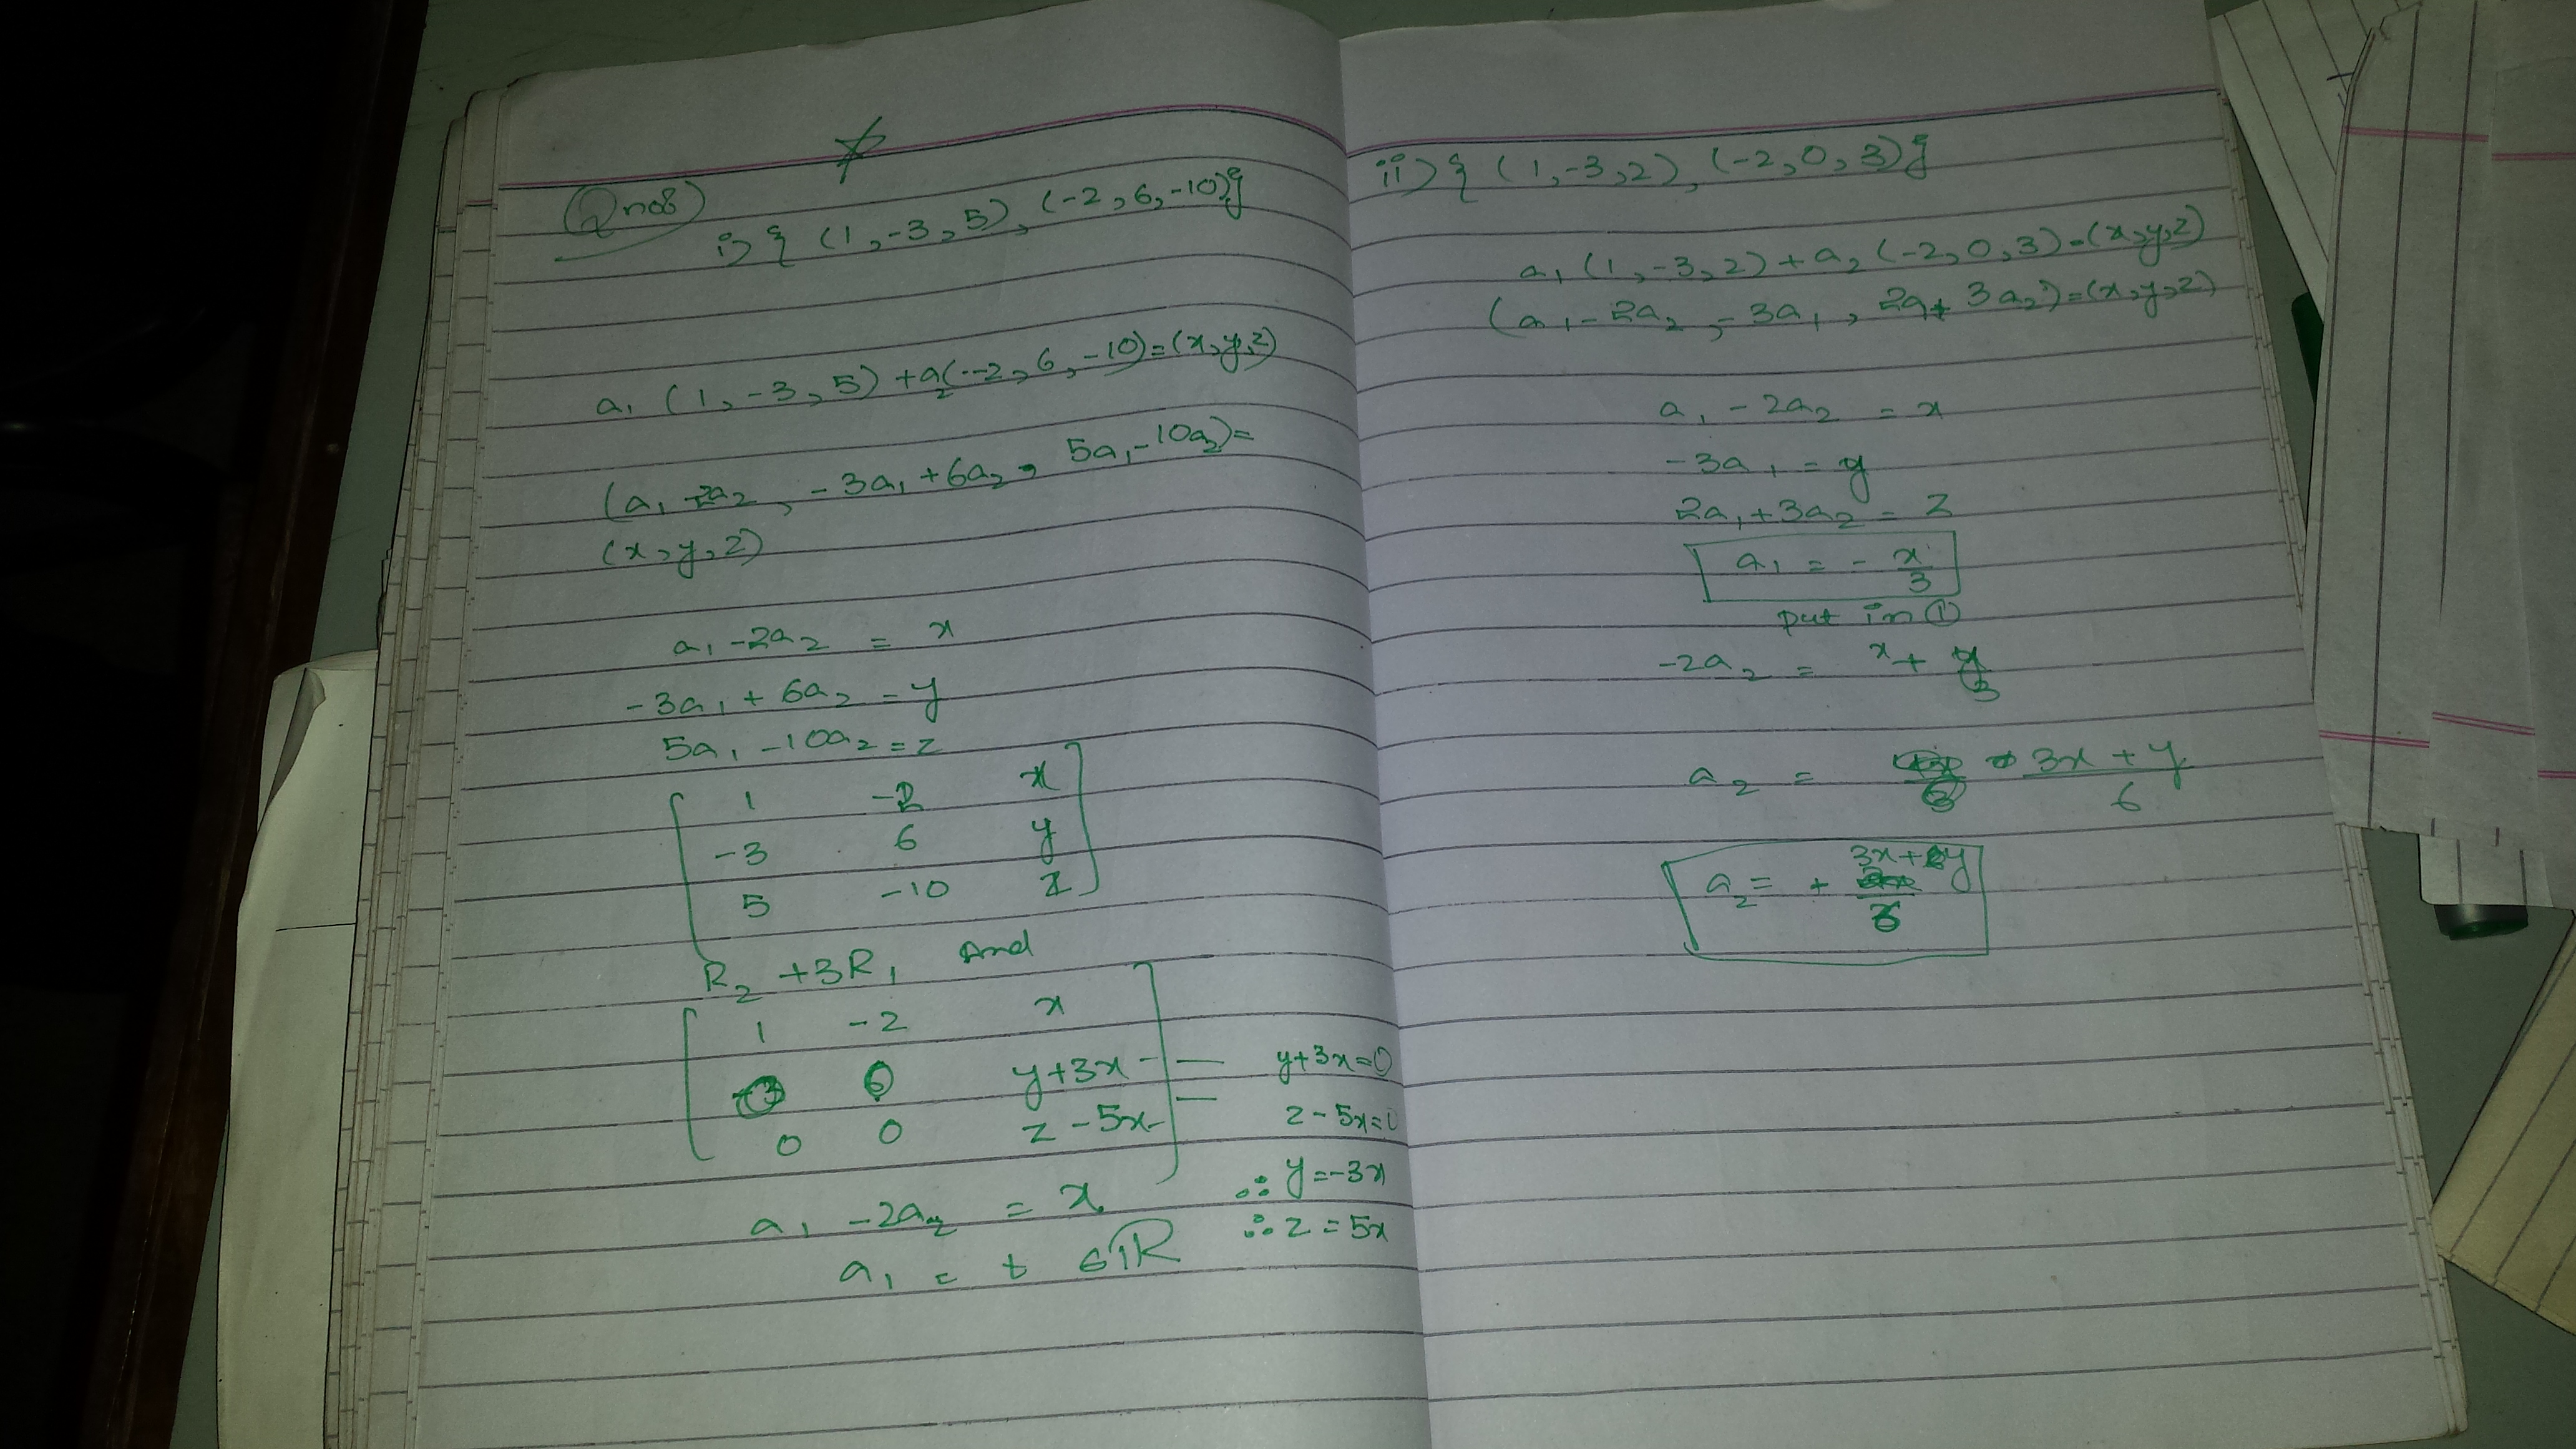 Qno8)
i) { (1, -3, 5), (-2, 6, -10)}
a₁ (1, -3, 5) + a₂(-2, 6, -10) = (x, y, z)
(a₁ - 2a₂, -3a₁ + 6a₂, 5a₁ - 10a₂) =
(x, y, z)
a₁ - 2a₂ = x
-3a₁ + 6a₂ = y
5a₁ - 10a₂ = z
1 -2 x
-3 6 y
5 -10 z
R₂ + 3R₁ and
1 -2 x
0 0 y+3x — y+3x=0
0 0 z-5x — z-5x=0
a₁ - 2a₂ = x ∴ y=-3x
a₁ = t ∈ ℝ ∴ z = 5x
ii) { (1, -3, 2), (-2, 0, 3)}
a₁ (1, -3, 2) + a₂ (-2, 0, 3) = (x, y, z)
(a₁ - 2a₂, -3a₁, 2a₁ + 3a₂) = (x, y, z)
a₁ - 2a₂ = x
-3a₁ = y
2a₁ + 3a₂ = z
a₁ = - x/3
put in ①
-2a₂ = x + y/3
a₂ = 3x + y / 6
a₂ = + 3x + y / 6